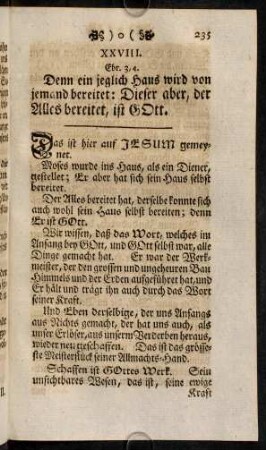 )o(
235
XXVIII.
Ebr. 3, 4.
Denn ein jeglich Haus wird von
jemand bereitet: Dieser aber, der
Alles bereitet, ist GOtt.
Das ist hier auf JESUM gemey-
net.
Moses wurde ins Haus, als ein Diener,
gestellet; Er aber hat sich sein Haus selbst
bereitet.
Der Alles bereitet hat, derselbe konnte sich
auch wohl sein Haus selbst bereiten; denn
Er ist GOtt.
Wir wissen, daß das Wort, welches im
Anfang bey GOtt, und GOtt selbst war, alle
Dinge gemacht hat. Er war der Werk-
meister, der den grossen und ungeheuren Bau
Himmels und der Erden aufgeführet hat, und
Er hält und trägt ihn auch durch das Wort
seiner Kraft.
Und Eben derselbige, der uns Anfangs
aus Nichts gemacht, der hat uns auch, als
unser Erlöser, aus unserm Verderben heraus,
wieder neu erschaffen. Das ist das grösse-
ste Meisterstück seiner Allmachts-Hand.
Schaffen ist GOttes Werk. Sein
unsichtbares Wesen, das ist, seine ewige
Kraft